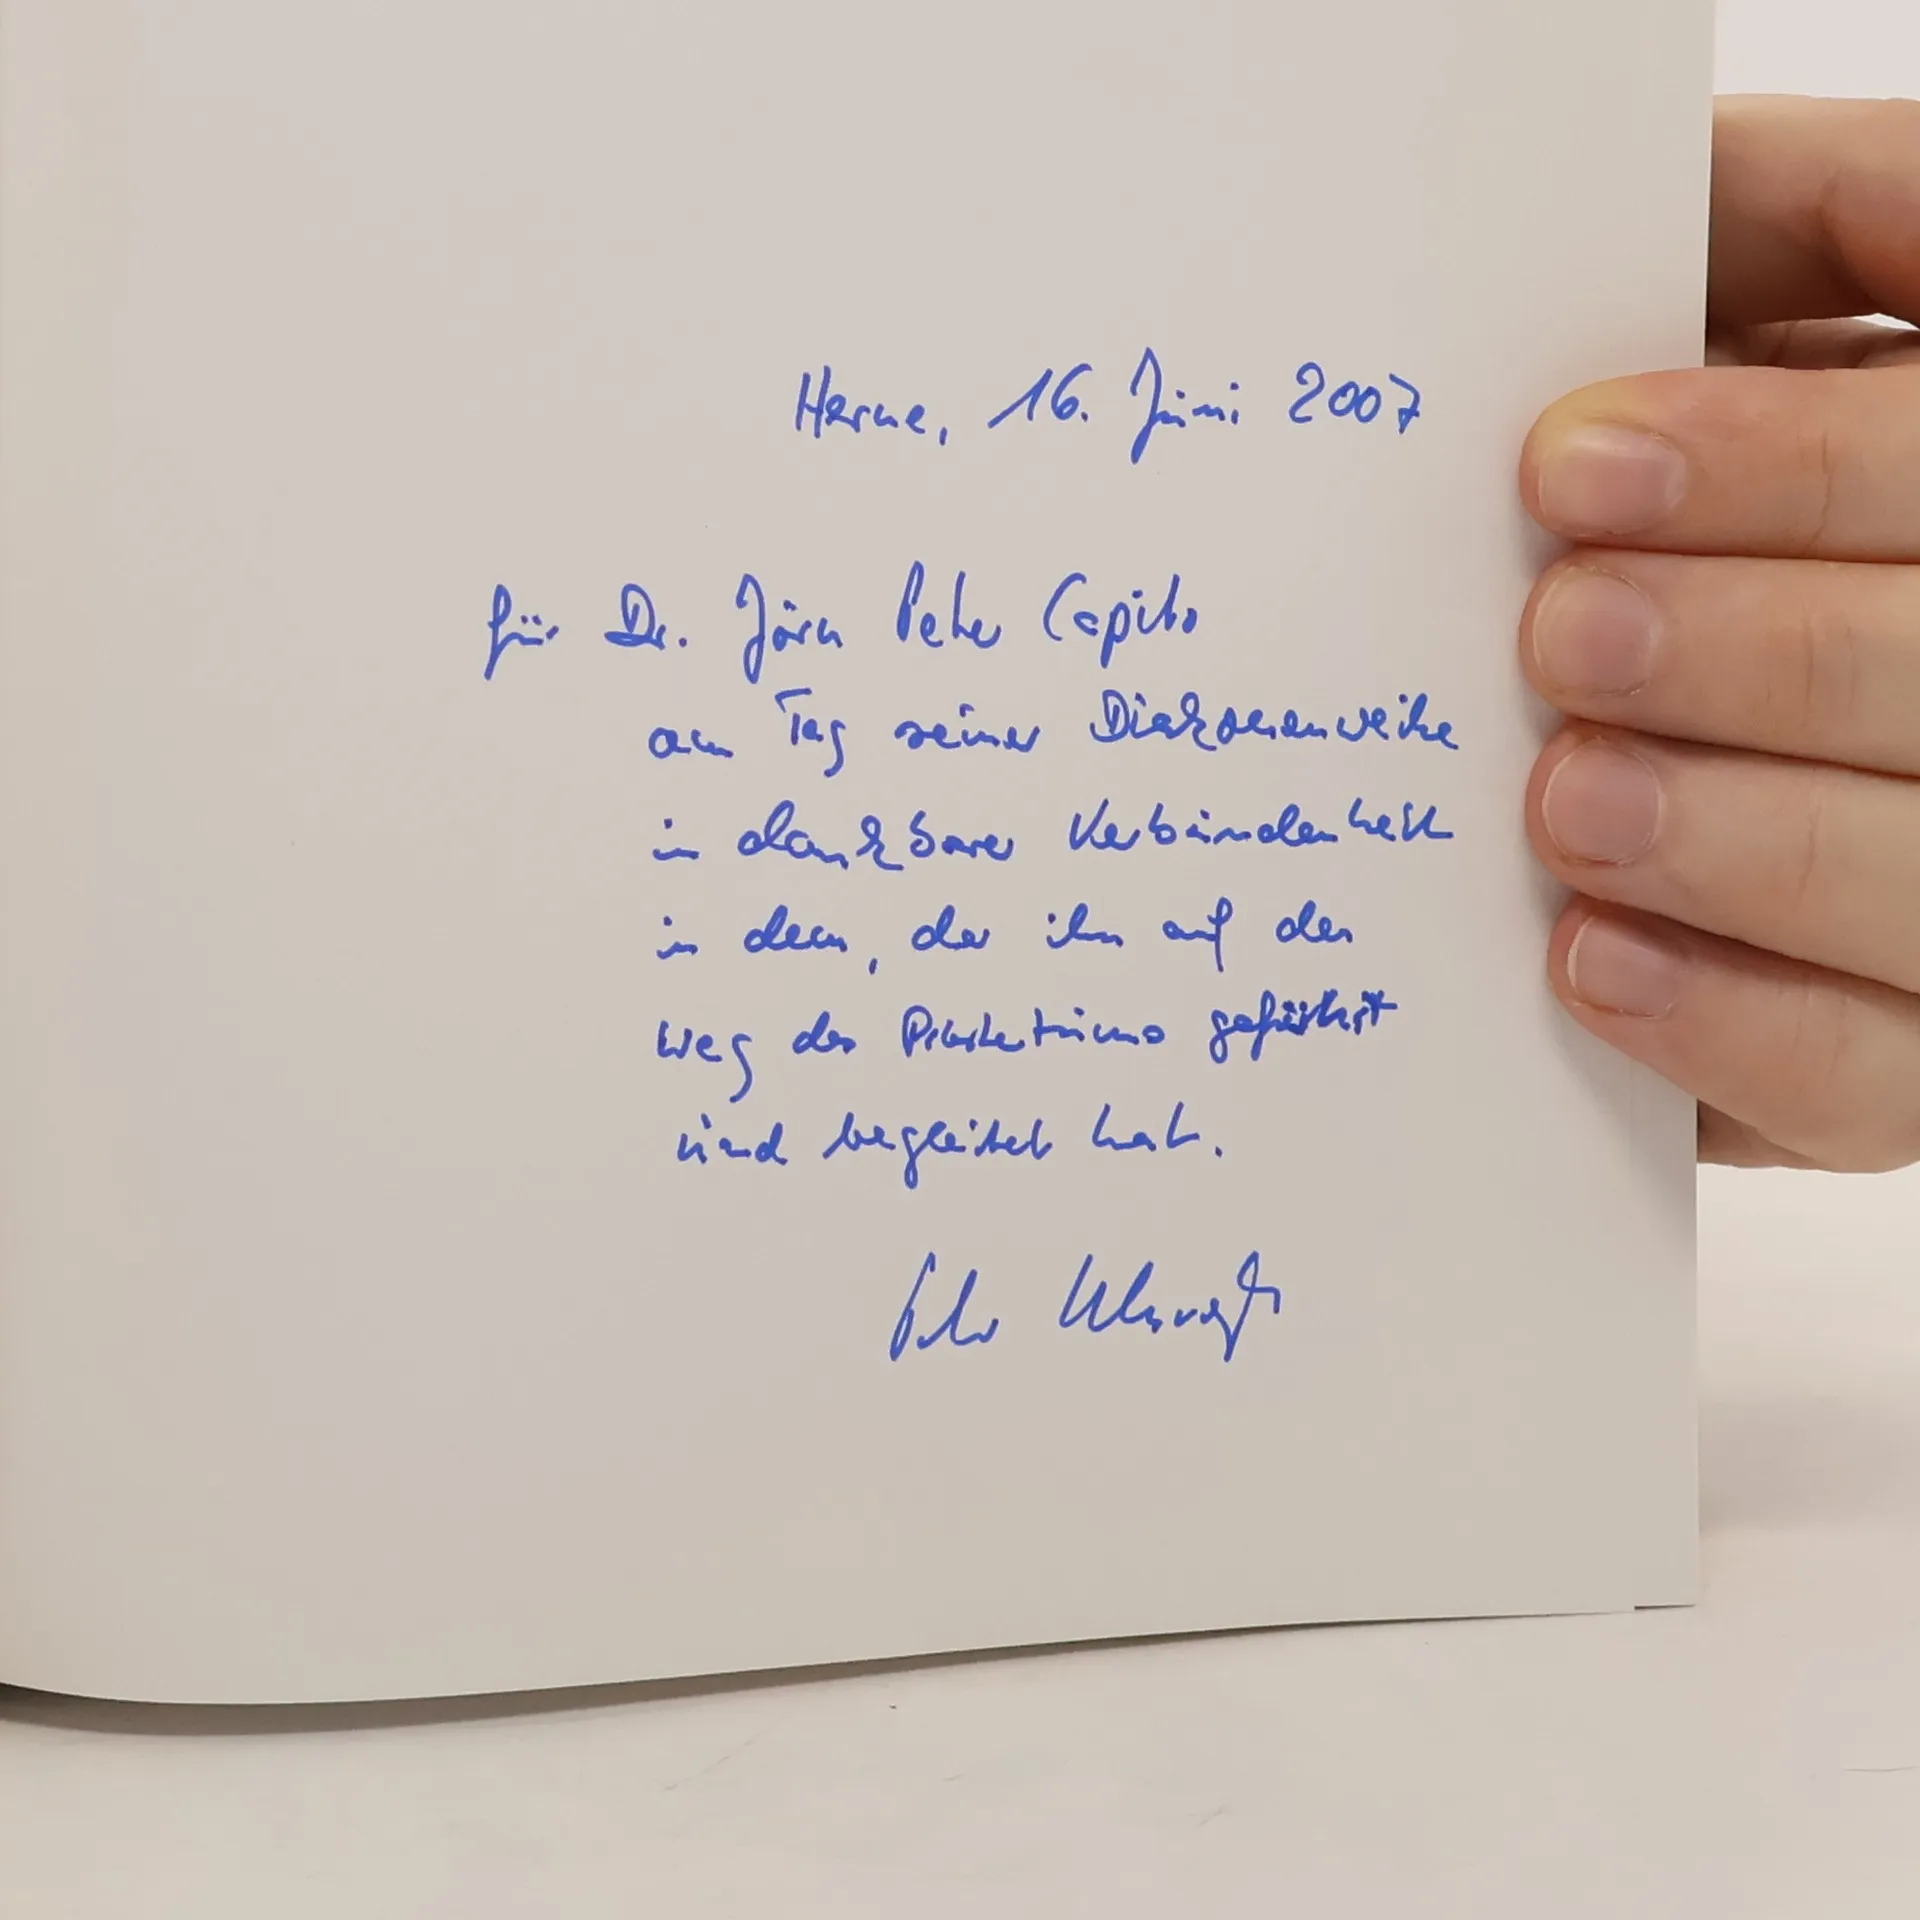 Herne, 16. Juni 2007
für Dr. Jörn Peter Capito
am Tag seiner Diakonenweihe
in dankbarer Verbundenheit
in dem, der ihn auf den
Weg des Priestertums geführt
und begleitet hat.
Peter